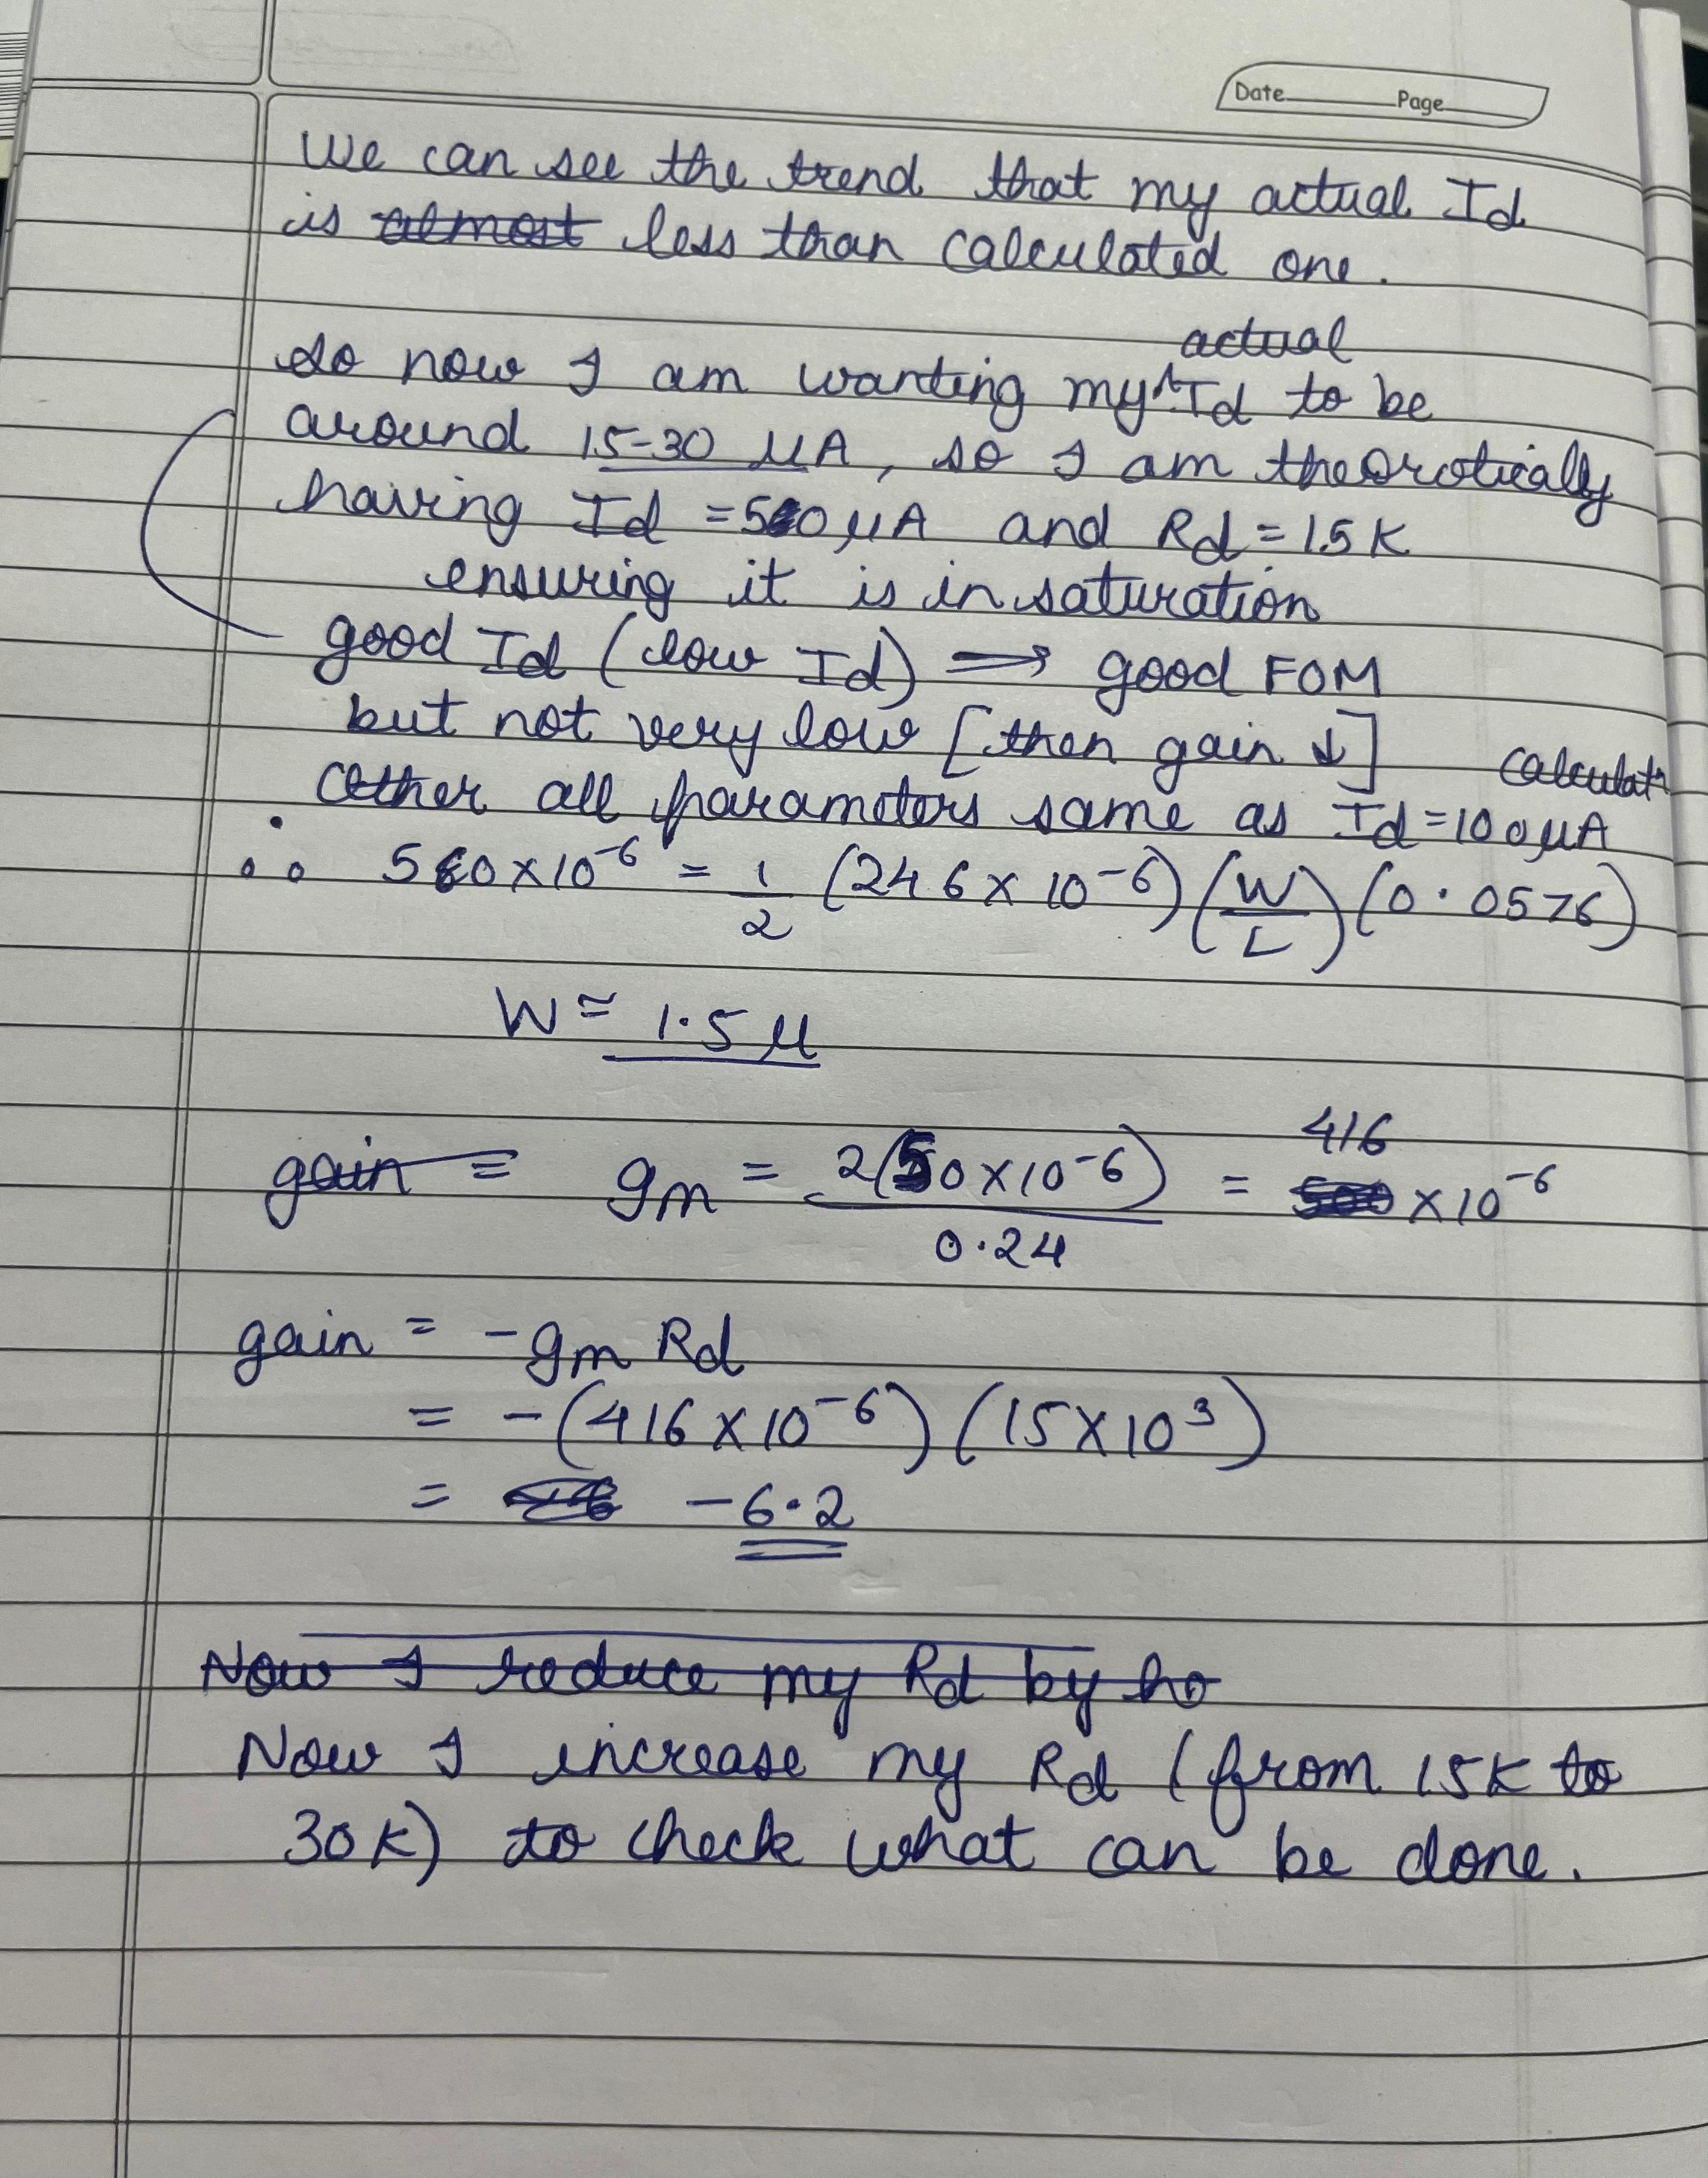 Date Page
We can see the trend that my actual Id
is almost less than calculated one.
actual
so now I am wanting my ^ Id to be
around 15-30 μA, so I am theorotically
having Id = 50 μA and Rd = 15 K
ensuring it is in saturation
good Id (low Id) ⇒ good FOM
but not very low [then gain ↓]
calculatn
Other all parameters same as Id = 100 μA
∴ 50 × 10⁻⁶ = 1/2 (246 × 10⁻⁶) (W/L) (0.0576)
W ≈ 1.5 μ
gain = gm = 2(50 × 10⁻⁶) / 0.24 = 416 × 10⁻⁶
gain = - gm Rd
= - (416 × 10⁻⁶) (15 × 10³)
= - 6.2
Now I reduce my Rd by ho
Now I increase my Rd (from 15K to
30K) to check what can be done.